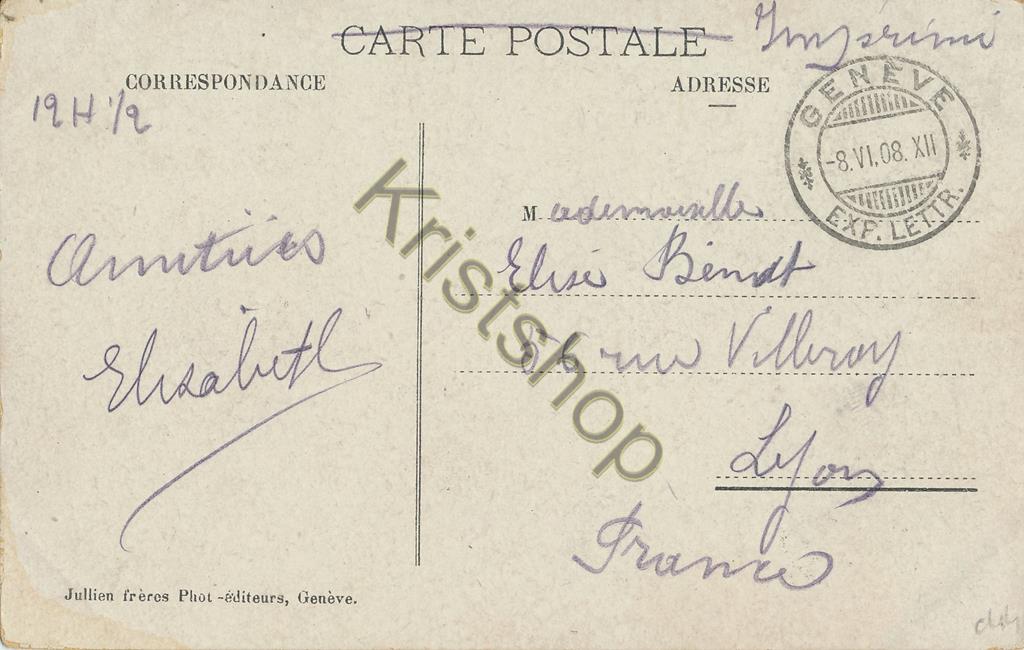 CARTE POSTALE Imprimé
CORRESPONDANCE
ADRESSE
12 H 1/2
GENÈVE
-8.VI.08. XII
EXP. LETTR.
Mademoiselle
Elise
56 rue Villeroy
Lyon
France
Amitiés
Elisabeth
Jullien frères Phot-éditeurs, Genève.
Kristshop